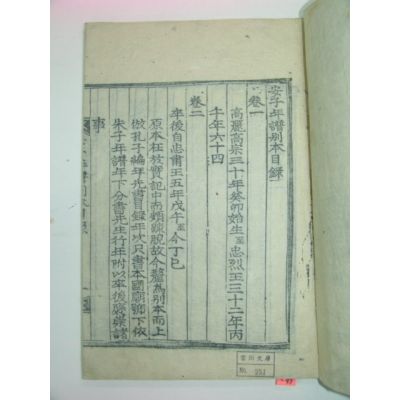 安子年譜別本目錄
卷一
高麗高宗三十年癸卯始生至忠烈王三十二年丙
午年六十四
卷二
卒後自忠肅王五年戊午至今丁巳
原本在放實記中而頗疎脫故今釐為別本而上
倣孔子編年先書目錄年次只書本國朝鄉下依
朱子年譜年下分書先生行年附以卒後褒崇諸
事
No. 251